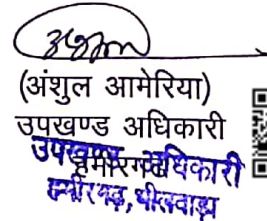 (अंशुल आमेरिया)
उपखण्ड अधिकारी
हमीरगढ
उपखण्ड अधिकारी
हमीरगढ़, भीलवाड़ा